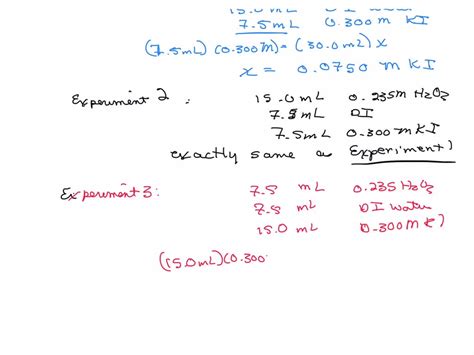 15.0mL DI water
7.5mL 0.300 m KI
(7.5mL) (0.300M) = (30.0mL) x
x = 0.0750 m KI
Experiment 2: 15.0mL 0.235m H2O2
7.5mL DI
7.5mL 0.300 m KI
exactly same as Experiment 1
Experiment 3: 7.5 mL 0.235 H2O2
7.5 mL DI water
15.0 mL 0.300 M KI
(15.0mL)(0.300